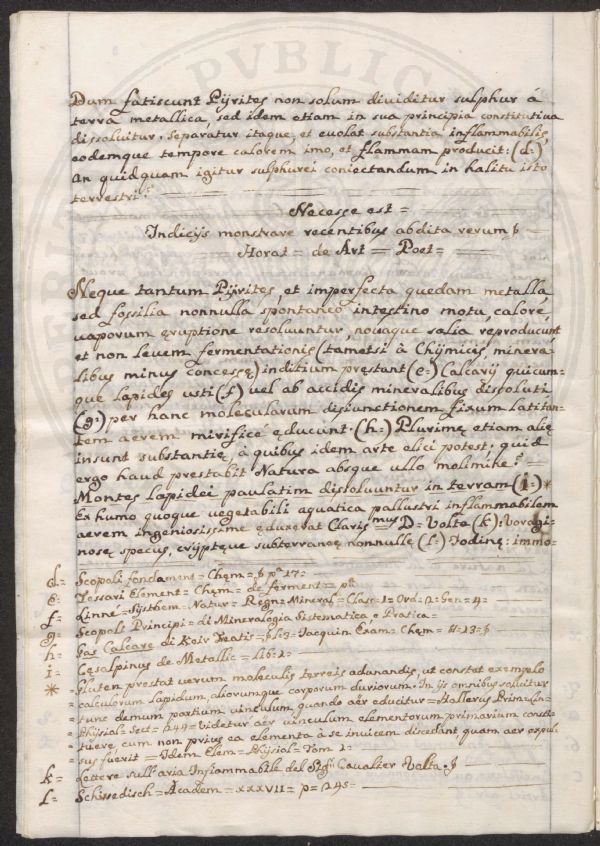 Dum fatiscunt Pÿrites non solum diuiditur sulphur á
terrâ metallica, sed idem etiam in sua principia constitutiua
dissoluitur. Separatur itaque, et euolat substantia inflammabilis,
eodemque tempore calorem imo, et flammam producit: (d:)
An quidquam igitur sulphurei coniectandum in halitu isto
terrestri?
Necesse est =
Indicÿs monstrare recentibus abdita rerum
Horat = de Art = Poet =
Neque tantum Pÿrites, et imperfecta quedam metalla,
sed fossilia nonnulla spontaneo intestino motu, calore,
uaporum eruptione resoluuntur, nouaque salia reproducunt
et non leuem fermentationis (tametsi à Chÿmicis, minera-
libus minus concessę) inditium prestant (e:) Calcarÿ quicum-
que lapides usti (f) uel ab accidis mineralibus dissoluti
(g:) per hanc molecularum disiunctionem fixum latitan-
tem aerem mirifice ęducunt. (h:) Plurimę etiam alię
insunt substantię, à quibus idem arte elici potest: quid
ergo haud prestabit Natura absque ullo molimine?
Montes lapidei paulatim dissoluuntur in terram (i:) *
Ex humo quoque uegetabili aquatica pallustri inflammabilem
aerem ingeniosissime ęduxerat Claris mus D = Volta (k): Voragi-
nosę specus, crÿptęque subterraneę nonnullę (l:) Jodinę: immo-
d = Scopoli fondament = Chem = § pa 17 =
e = Tessari Element = Chęm = de ferment =
f = Linné = Systhem = Natur = Regn = Mineral = Class = 1 = Ord = 2 = Gen = 4 =
g = Scopoli Principi = di Mineralogia Sistematica, e Pratica =
h = Jacquin Exam = Chęm = 11 = 13 = §
i = Cęsalpinus de Metallic = Lib = 1 =
* = Gluten prestat uerum moleculis terreis adunandis, ut constat exemplo
= calculorum lapidum, aliorumque corporum duriorum. In ijs omnibus soluitur
= tunc demum partium uinculum quando aër educitur = Hallerus Prim = Lin =
= Phÿsiol = Sect = 244 = Videtur aër uinculum elementorum primarium consti-
= tuere cum non prius ea elementa à se inuicem discedant quam aer expul-
= sus fuerit = Idem Elem = Phÿsiol = Tom 2 =
k = Lettere sull'aria Infiammabile del Sig.r Caualier Volta = §
l = Academ = XXXVII = p = 1245 =
PVBLIC